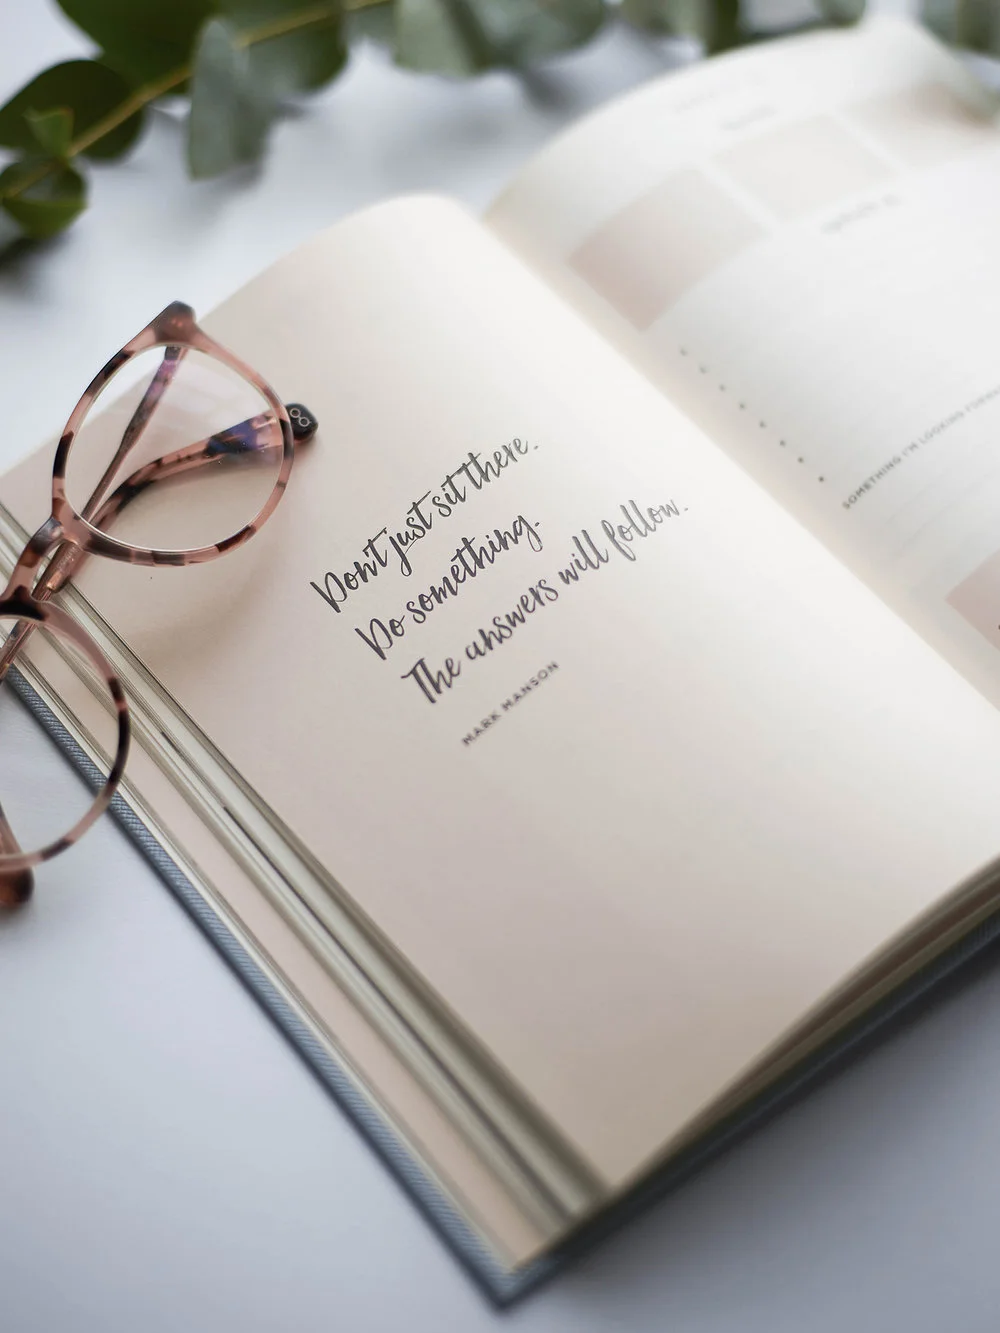 Don't just sit there.
Do something.
The answers will follow.
MARK MANSON
SOMETHING I'M LOOKING FORWARD